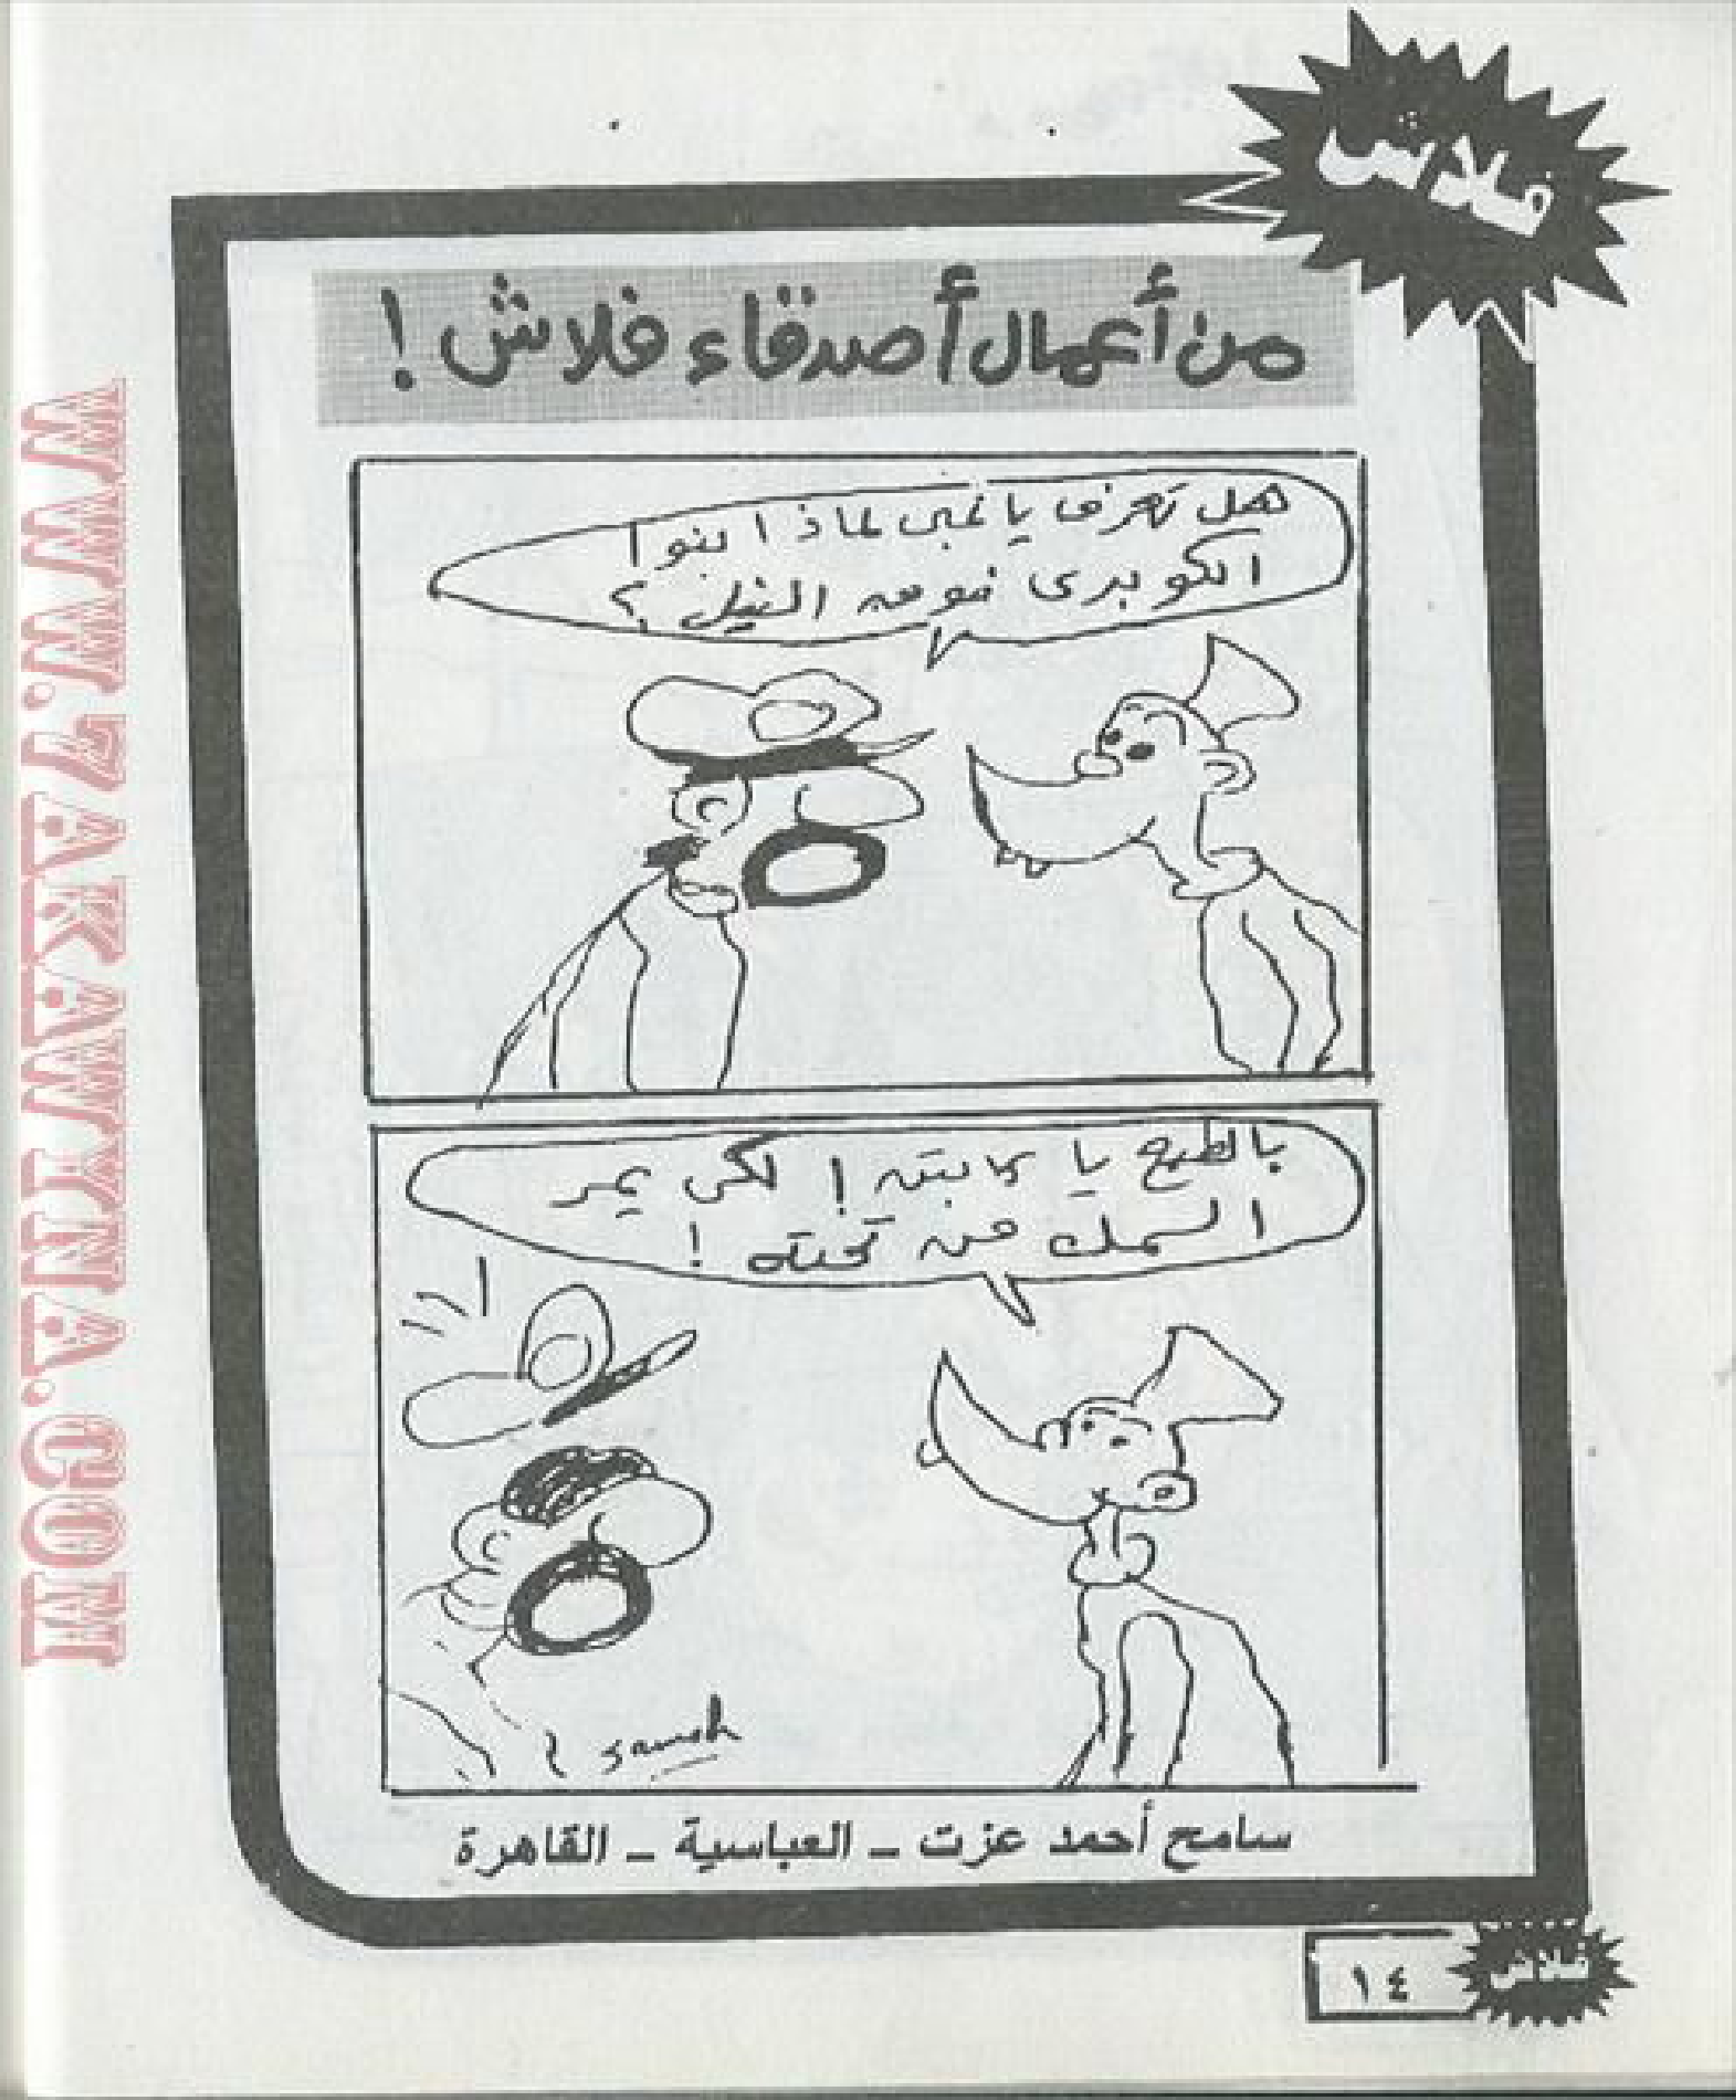 فلاش
من أعمال أصدقاء فلاش !
هل تعرف يا غبى لماذا بنوا
الكوبرى فوق النيل ؟
بالطبع يا كابتن ! لكى يمر
السمك من تحته !
Sameh
سامح أحمد عزت ـ العباسية ـ القاهرة
١٤
فلاش
WWW.7AKAWINA.COM